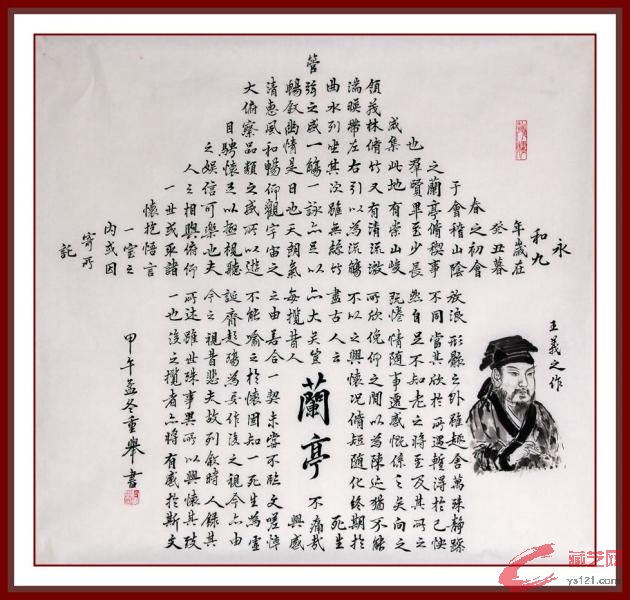 永
和九
年歲在
癸丑暮
春之初會
于會稽山陰
之蘭亭脩稧事
也羣賢畢至少長
咸集此地有崇山峻
領茂林脩竹又有清流激
湍暎帶左右引以為流觴
曲水列坐其次雖無絲竹
管弦之盛一觴一詠亦足以
暢叙幽情是日也天朗氣
清惠風和暢仰觀宇宙之
大俯察品類之盛所以遊
目騁懷足以極視聽
之娛信可樂也夫
人之相與俯仰
一世或取諸
懷抱悟言
一室之
內或因
寄所
託
放浪形骸之外雖趣舍萬殊靜躁
不同當其欣於所遇暫得於己快
然自足不知老之將至及其所之
既惓情隨事遷感慨係之矣向之
所欣俛仰之閒以為陳迹猶不能
不以之興懷況脩短隨化終期於
盡古人云死生
亦大矣豈不痛哉
每攬昔人興感
之由若合一契未嘗不臨文嗟悼
不能喻之於懷固知一死生為虛
誕齊彭殤為妄作後之視今亦由
今之視昔悲夫故列叙時人錄其
所述雖世殊事異所以興懷其致
一也後之攬者亦將有感於斯文
蘭亭
甲午孟冬重舉書
王羲之作
藏艺网
ys121.com